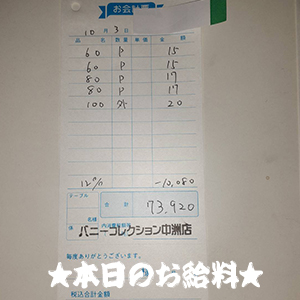 お会計票
10月3日
品名 数量 単価 金額
60 P 15
60 P 15
80 P 17
80 P 17
100 外 20
12% -10,080
テーブル
合計 73,920
名様
バニーコレクション中洲店
毎度ありがとうございます。
★本日のお給料★
税込合計金額